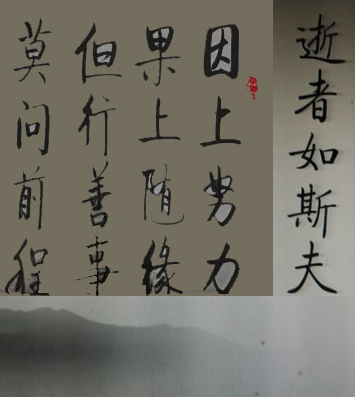 因上努力
果上随缘
但行善事
莫问前程
逝者如斯夫